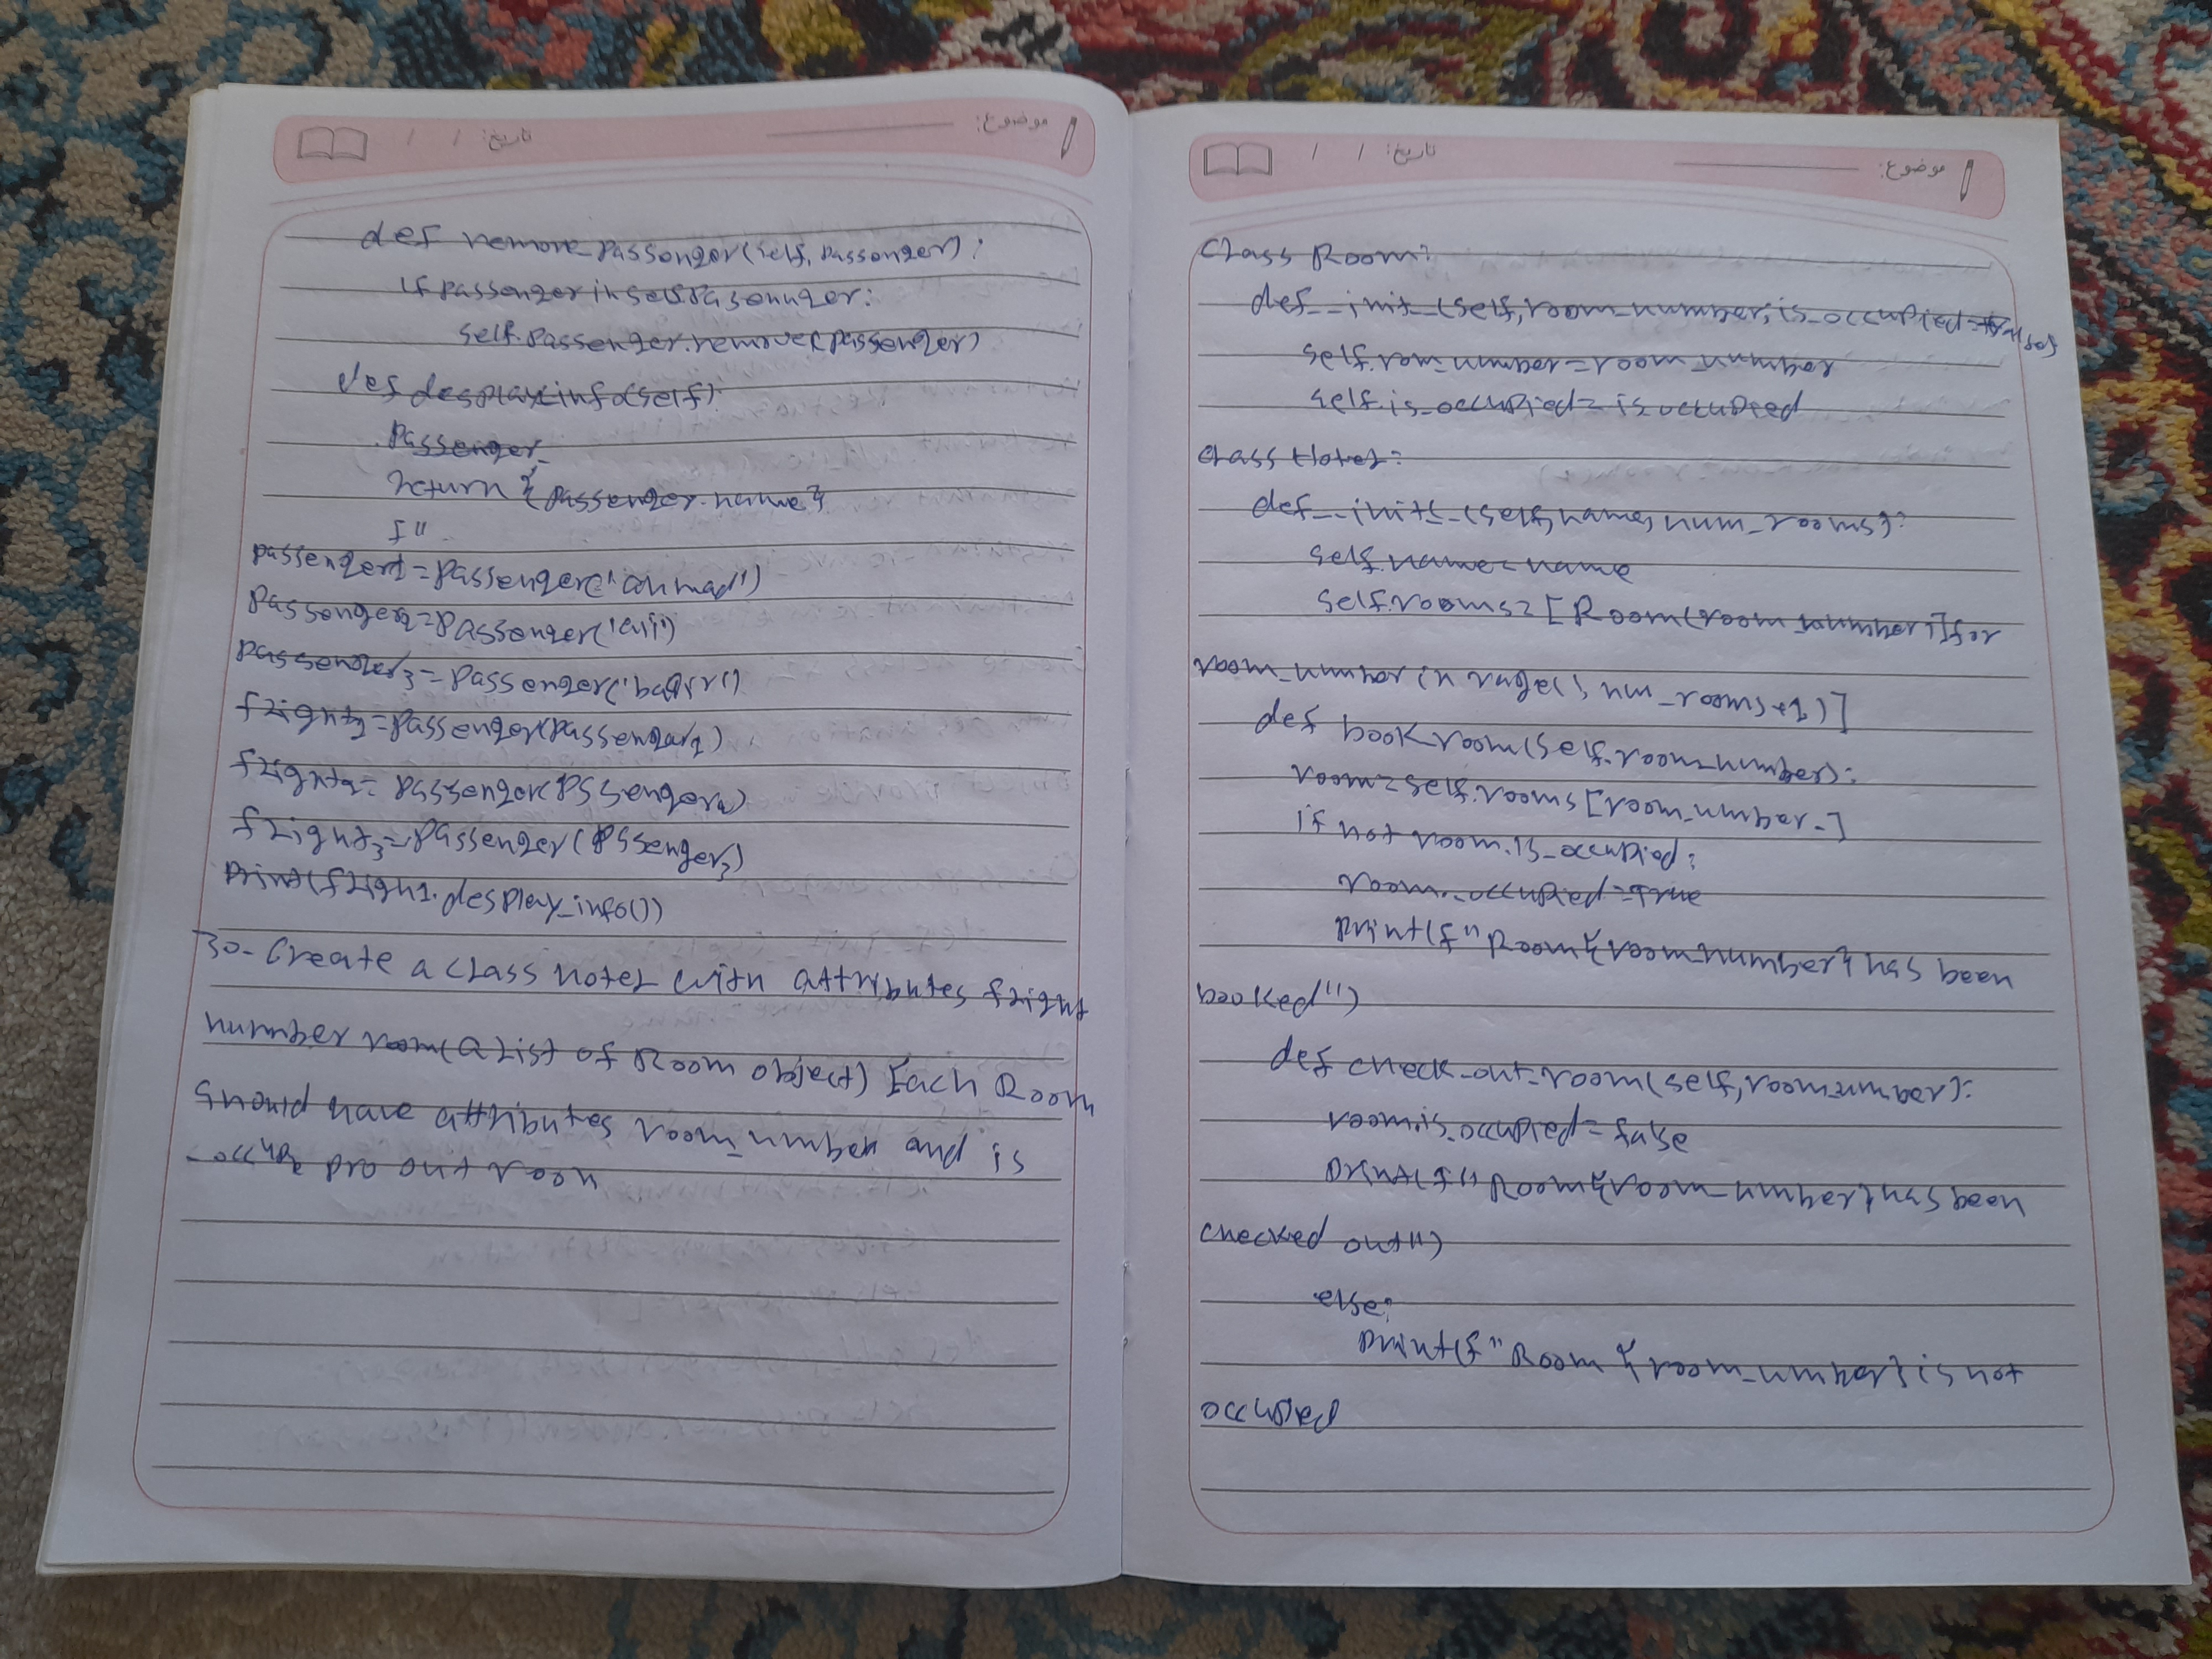 تاریخ: / / موضوع:
def remove_passenger(self, passenger):
if passenger in self.passenger:
self.passenger.remove(passenger)
def desplay_info(self)
passenger_
return {passenger.name}
f"
passenger1=passenger('
passenger2=passenger('
passenger3=passenger('
flight1=passenger(passenger1)
flight2=passenger(passenger2)
flight3=passenger(passenger3)
print(flight1.desplay_info())
30- Create a class Hotel with attributes flight
number room(a list of Room object) Each Room
should have attributes room_number and is
_occupy pro out room
تاریخ: / / موضوع:
Class Room:
def __init__(self, room_number, is_occupied=
self.room_number=room_number
self.is_occupied=is_occupied
class Hotel:
def __init__(self, name, num_rooms):
self.name=name
self.rooms=[Room(room_number) for
room_number in range(1, num_rooms+1)]
def book_room(self, room_number):
room=self.rooms[room_number-]
if not room.is_occupied:
room._occupied=true
print(f"Room {room_number} has been
booked")
def check_out_room(self, room_number):
room is_occupied=false
print(f"Room {room_number} has been
checked out")
else:
print(f"Room {room_number} is not
occupied